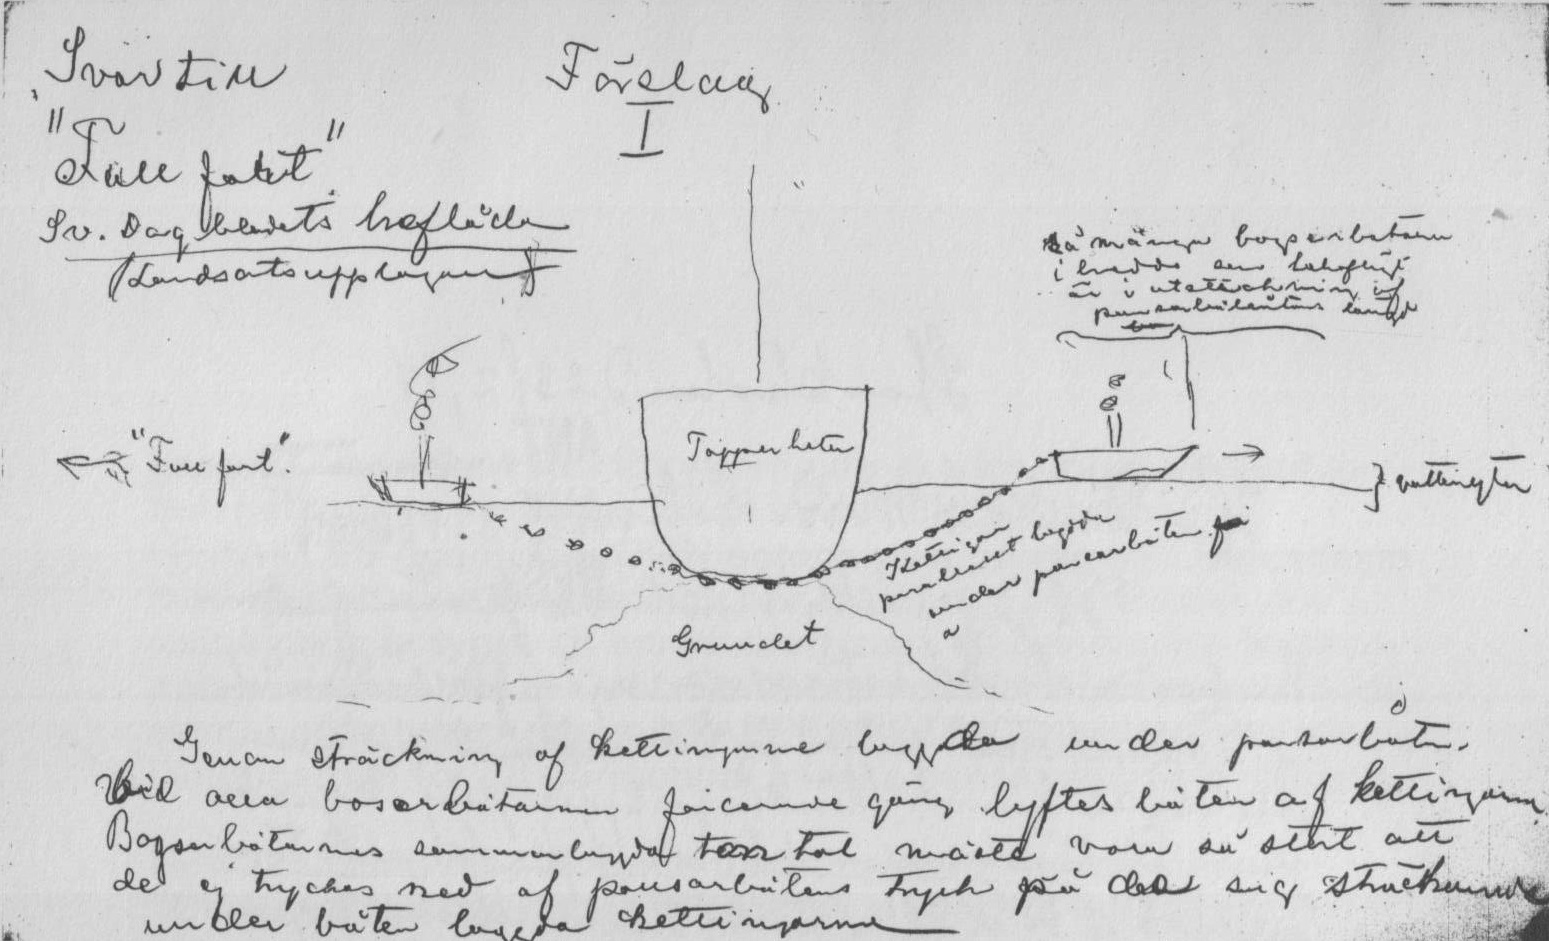 Svar till
Förslag
I
"Full fart"
Sv. Dagbladets breflåda
(Landsortsupplagan)
så många bogserbåtar
i bredd som behöfligt
är i utsträckning af
pansarbåtens längd
"Full fart".
Tapperheten
vattenytan
Kettingar
parallert lagda
under pansarbåten
Grundet
Genom sträckning af kettingarne lagda under pansarbåten
Vid alla bogserbåtarnes gång lyftes båten af kettingarne
Bogserbåtarnes sammanlagda tontal måste vara så stort att
de ej tryckes ned af pansarbåtens tryck på de sig sträckande
under båten lagda kettingarne